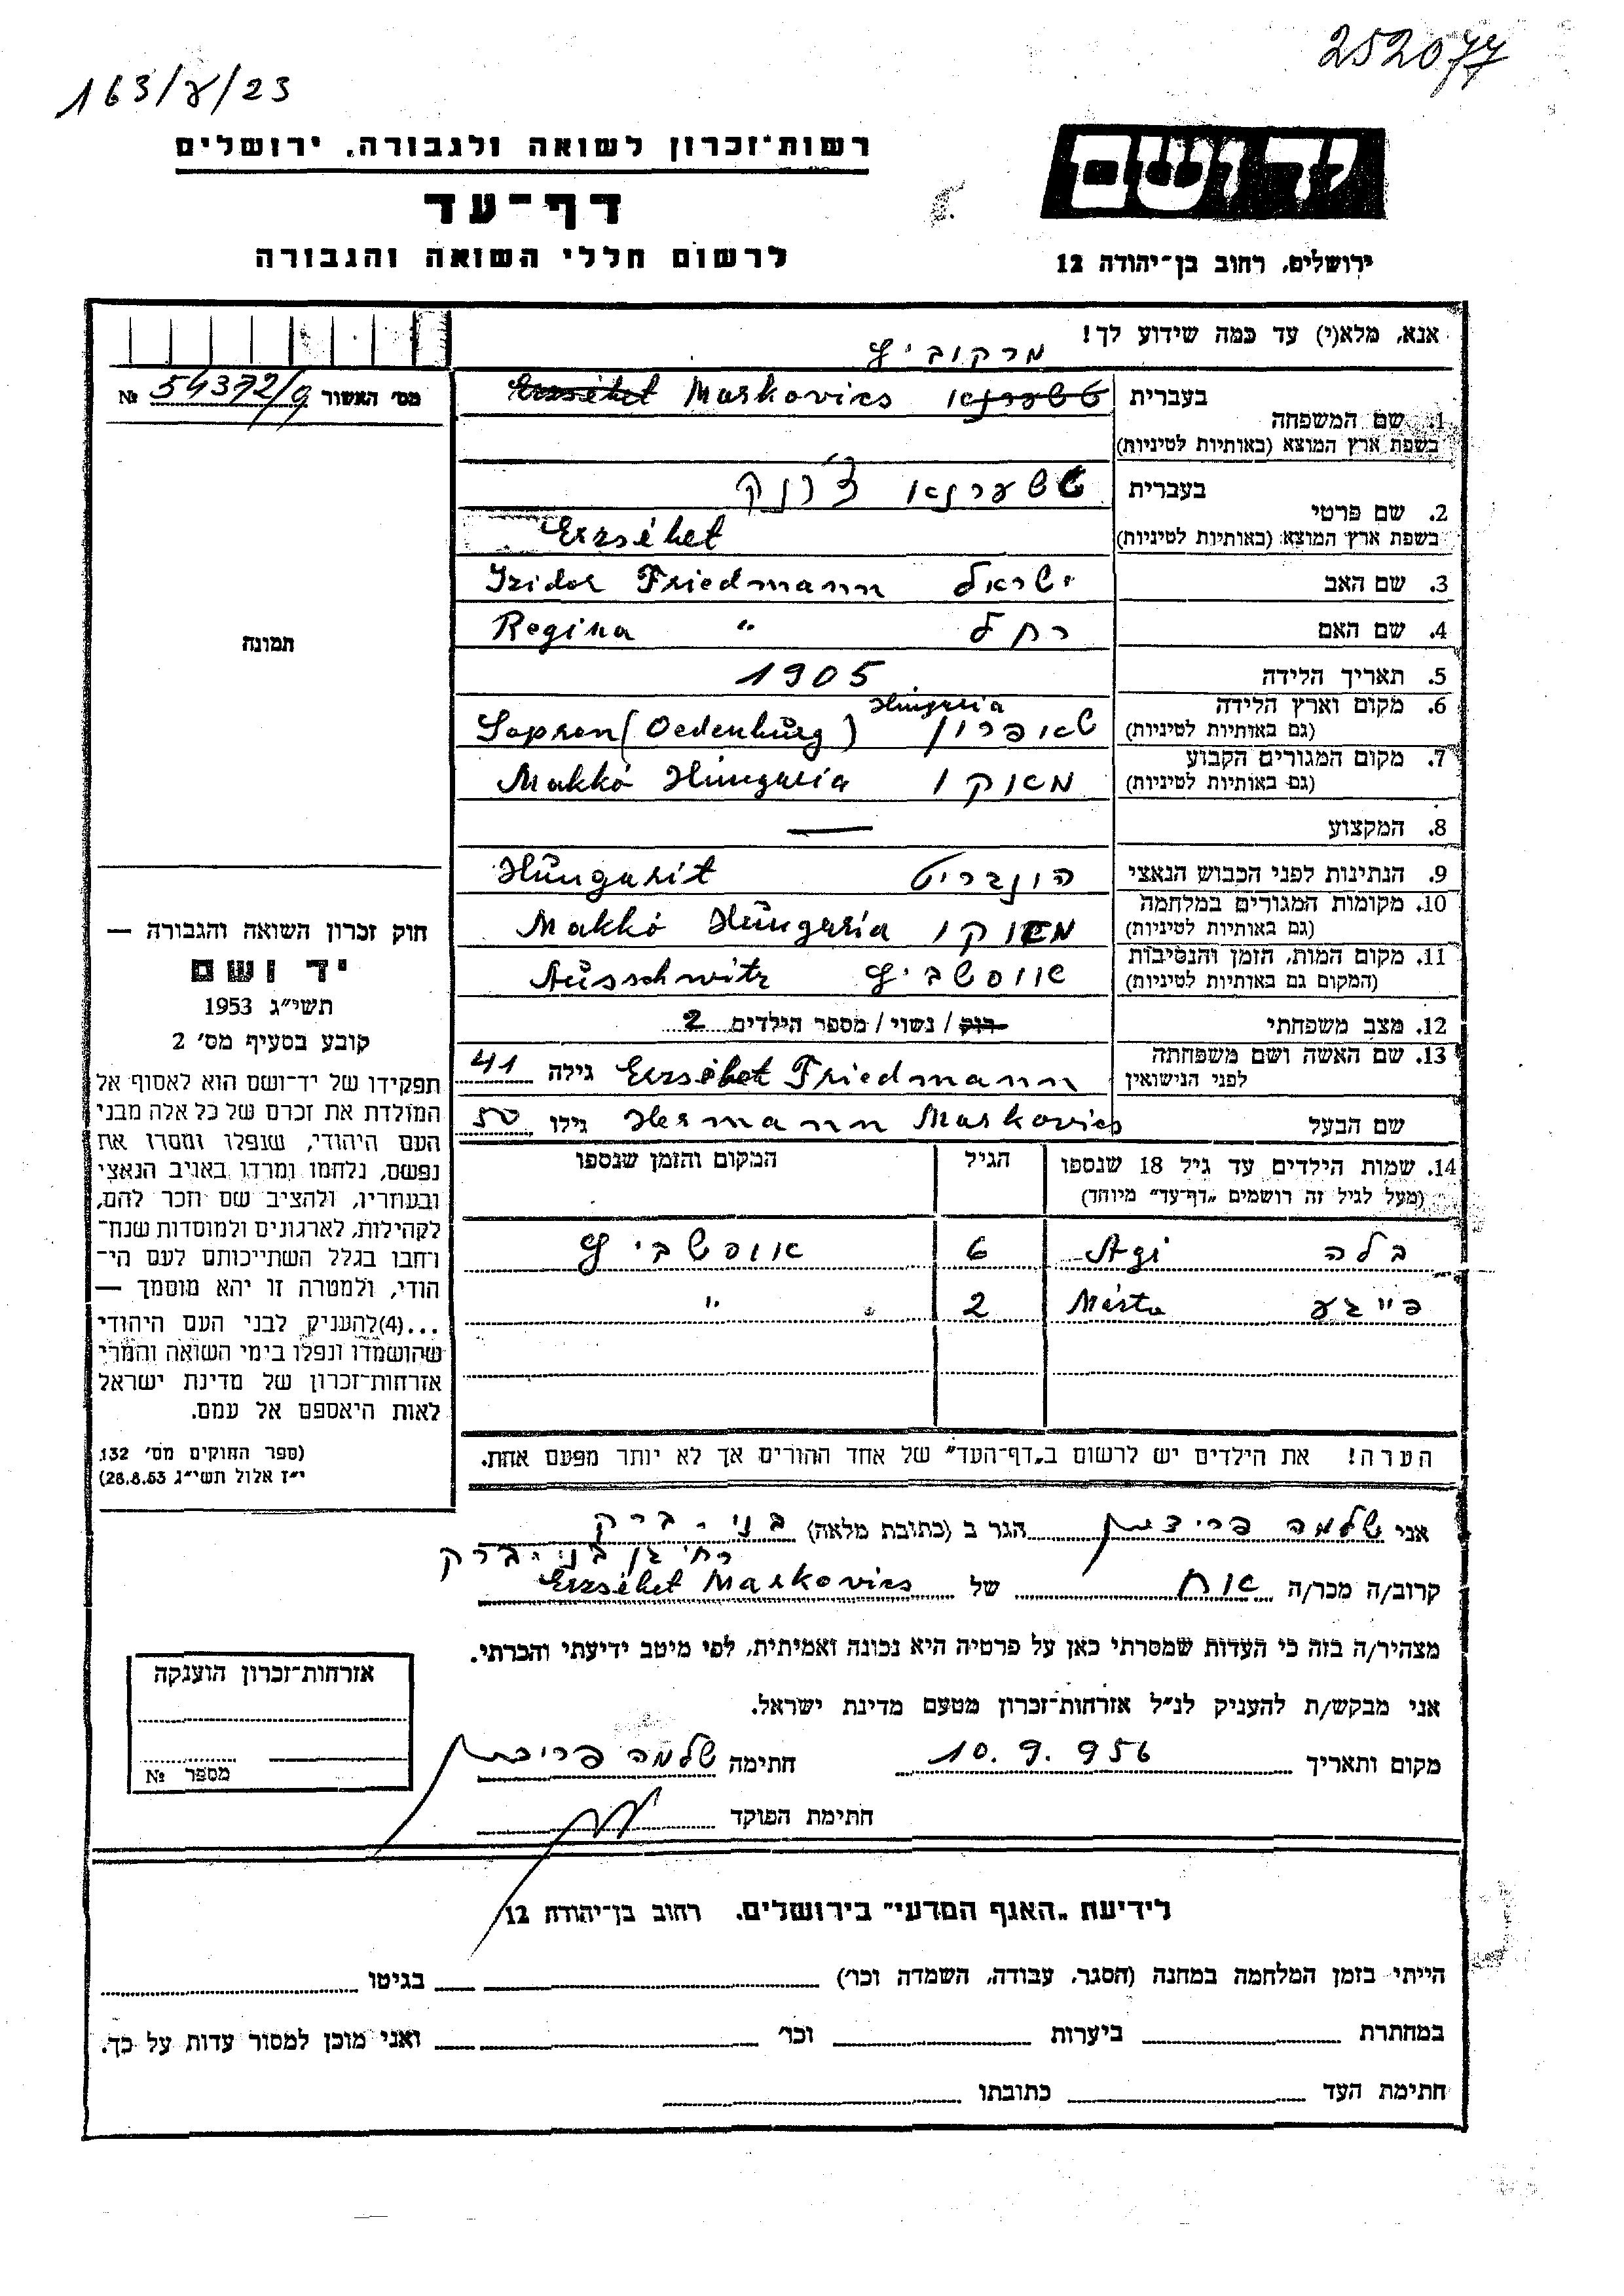 252077
163/ע/23
רשות־זכרון לשואה ולגבורה, ירושלים
דף־עד
לרשום חללי השואה והגבורה
יד ושם
ירושלים, רחוב בן־יהודה 12
אנא, מלא(י) עד כמה שידוע לך!
מרקוביץ
מס׳ האשור 54372/9 №
1. שם המשפחה בעברית Markovics
בשפת ארץ המוצא (באותיות לטיניות)
2. שם פרטי בעברית
בשפת ארץ המוצא (באותיות לטיניות) Erzsébet
3. שם האב ישראל Izidor Friedmann
4. שם האם רחל Regina "
5. תאריך הלידה 1905
6. מקום וארץ הלידה Hungaria
(גם באותיות לטיניות) שאופרון Sopron (Oedenburg)
7. מקום המגורים הקבוע
(גם באותיות לטיניות) מאקו Makkó Hungaria
8. המקצוע —
9. הנתינות לפני הכבוש הנאצי הונגרית Hungarit
10. מקומות המגורים במלחמה
(גם באותיות לטיניות) מאקו Makkó Hungaria
11. מקום המות, הזמן והנסיבות
(המקום גם באותיות לטיניות) אוסשביץ Ausschwitz
12. מצב משפחתי רווק / נשוי / מספר הילדים 2
13. שם האשה ושם משפחתה
לפני הנישואין Erzsébet Friedmann גילה 41
שם הבעל Hermann Markovics גילו 50
14. שמות הילדים עד גיל 18 שנספו
(מעל לגיל זה רושמים „דף־עד” מיוחד)
הגיל
המקום והזמן שנספו
בלה Agi 6 אוסשביץ
פייגע Márta 2 "
הערה! את הילדים יש לרשום ב„דף־העד” של אחד ההורים אך לא יותר מפעם אחת.
תמונה
חוק זכרון השואה והגבורה —
יד ושם
תשי״ג 1953
קובע בסעיף מס׳ 2
תפקידו של יד־ושם הוא לאסוף אל
המולדת את זכרם של כל אלה מבני
העם היהודי, שנפלו ומסרו את
נפשם, נלחמו ומרדו באויב הנאצי
ובעוזריו, ולהציב שם וזכר להם,
לקהילות, לארגונים ולמוסדות שנח־
רחבו בגלל השתייכותם לעם הי־
הודי, ולמטרה זו יהא מוסמך —
...(4)להעניק לבני העם היהודי
שהושמדו ונפלו בימי השואה והמרי
אזרחות־זכרון של מדינת ישראל
לאות היאספם אל עמם.
(ספר החוקים מס׳ 132,
י״ז אלול תשי״ג 28.8.53)
אני שלמה פרידמן הגר ב (כתובת מלאה) בני-ברק
רח׳ גן בני-ברק
קרוב/ה מכר/ה אח של Erzsébet Markovics
מצהיר/ה בזה כי העדות שמסרתי כאן על פרטיה היא נכונה ואמיתית, לפי מיטב ידיעתי והכרתי.
אני מבקש/ת להעניק לנ״ל אזרחות־זכרון מטעם מדינת ישראל.
מקום ותאריך 10.9.956 חתימה שלמה פרידמן
חתימת הפוקד
אזרחות־זכרון הוענקה
מספר №
לידיעת „האגף המדעי” בירושלים, רחוב בן־יהודה 12
הייתי בזמן המלחמה במחנה (הסגר, עבודה, השמדה וכו׳) בגיטו
במחתרת ביערות וכו׳ ואני מוכן למסור עדות על כך.
חתימת העד כתובתו